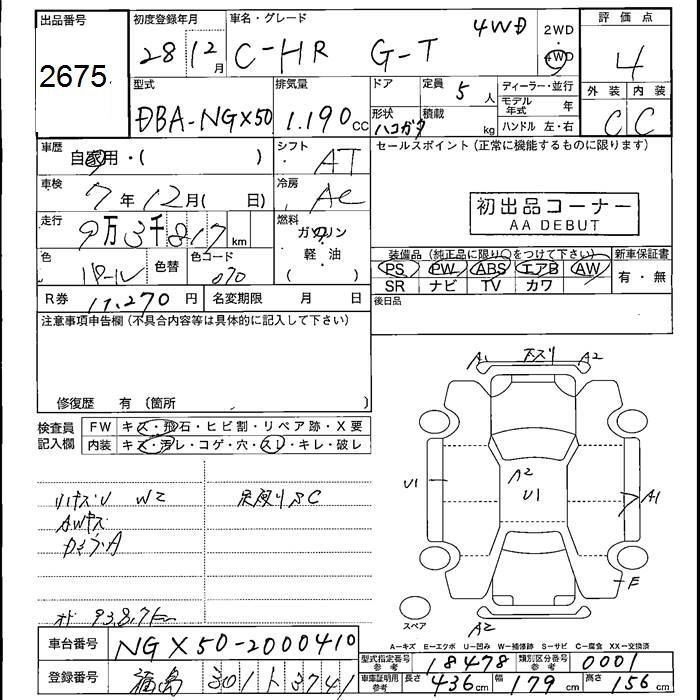 出品番号 初度登録年月 車名・グレード 4WD 2WD 評価点
2675 28 12月 C-HR G-T 4WD 4
型式 排気量 ドア 定員 5人 ディーラー・並行 外装 内装
DBA-NGX50 1.190cc 形状 ハコガタ 積載 kg モデル年式 年 C C
ハンドル 左・右
車歴 自家用・( ) シフト AT セールスポイント (正常に機能するものに限ります)
車検 7年12月( 日) 冷房 AC 初出品コーナー
AA DEBUT
走行 9万3千817km 燃料 ガソリン
軽・油
( )
装備品 (純正品に限り○をつけて下さい) 新車保証書
色 パール 色替 色コード 070 PS PW ABS エアB AW 有・無
SR ナビ TV カワ
R券 11,270円 名変期限 月 日 後日品
注意事項申告欄 (不具合内容等は具体的に記入して下さい)
修復歴 有 (箇所 )
検査員 FW キズ・飛石・ヒビ割・リペア跡・X要
記入欄 内装 キズ・汚レ・コゲ・穴・スレ・キレ・破レ
W2
AWキズ
A
93,817km
A1 下スリ A2
A2
U1 U1 A1
E
スペア A2
A=キズ E=エクボ U=凹み W=補修跡 S=サビ C=腐食 XX=交換済
車台番号 NGX50-2000410
登録番号 福島 301 ト 3741
型式指定番号 参考 18478 類別区分番号 参考 0001
車庫証明用 参考 長さ 436cm 幅 179cm 高さ 156cm